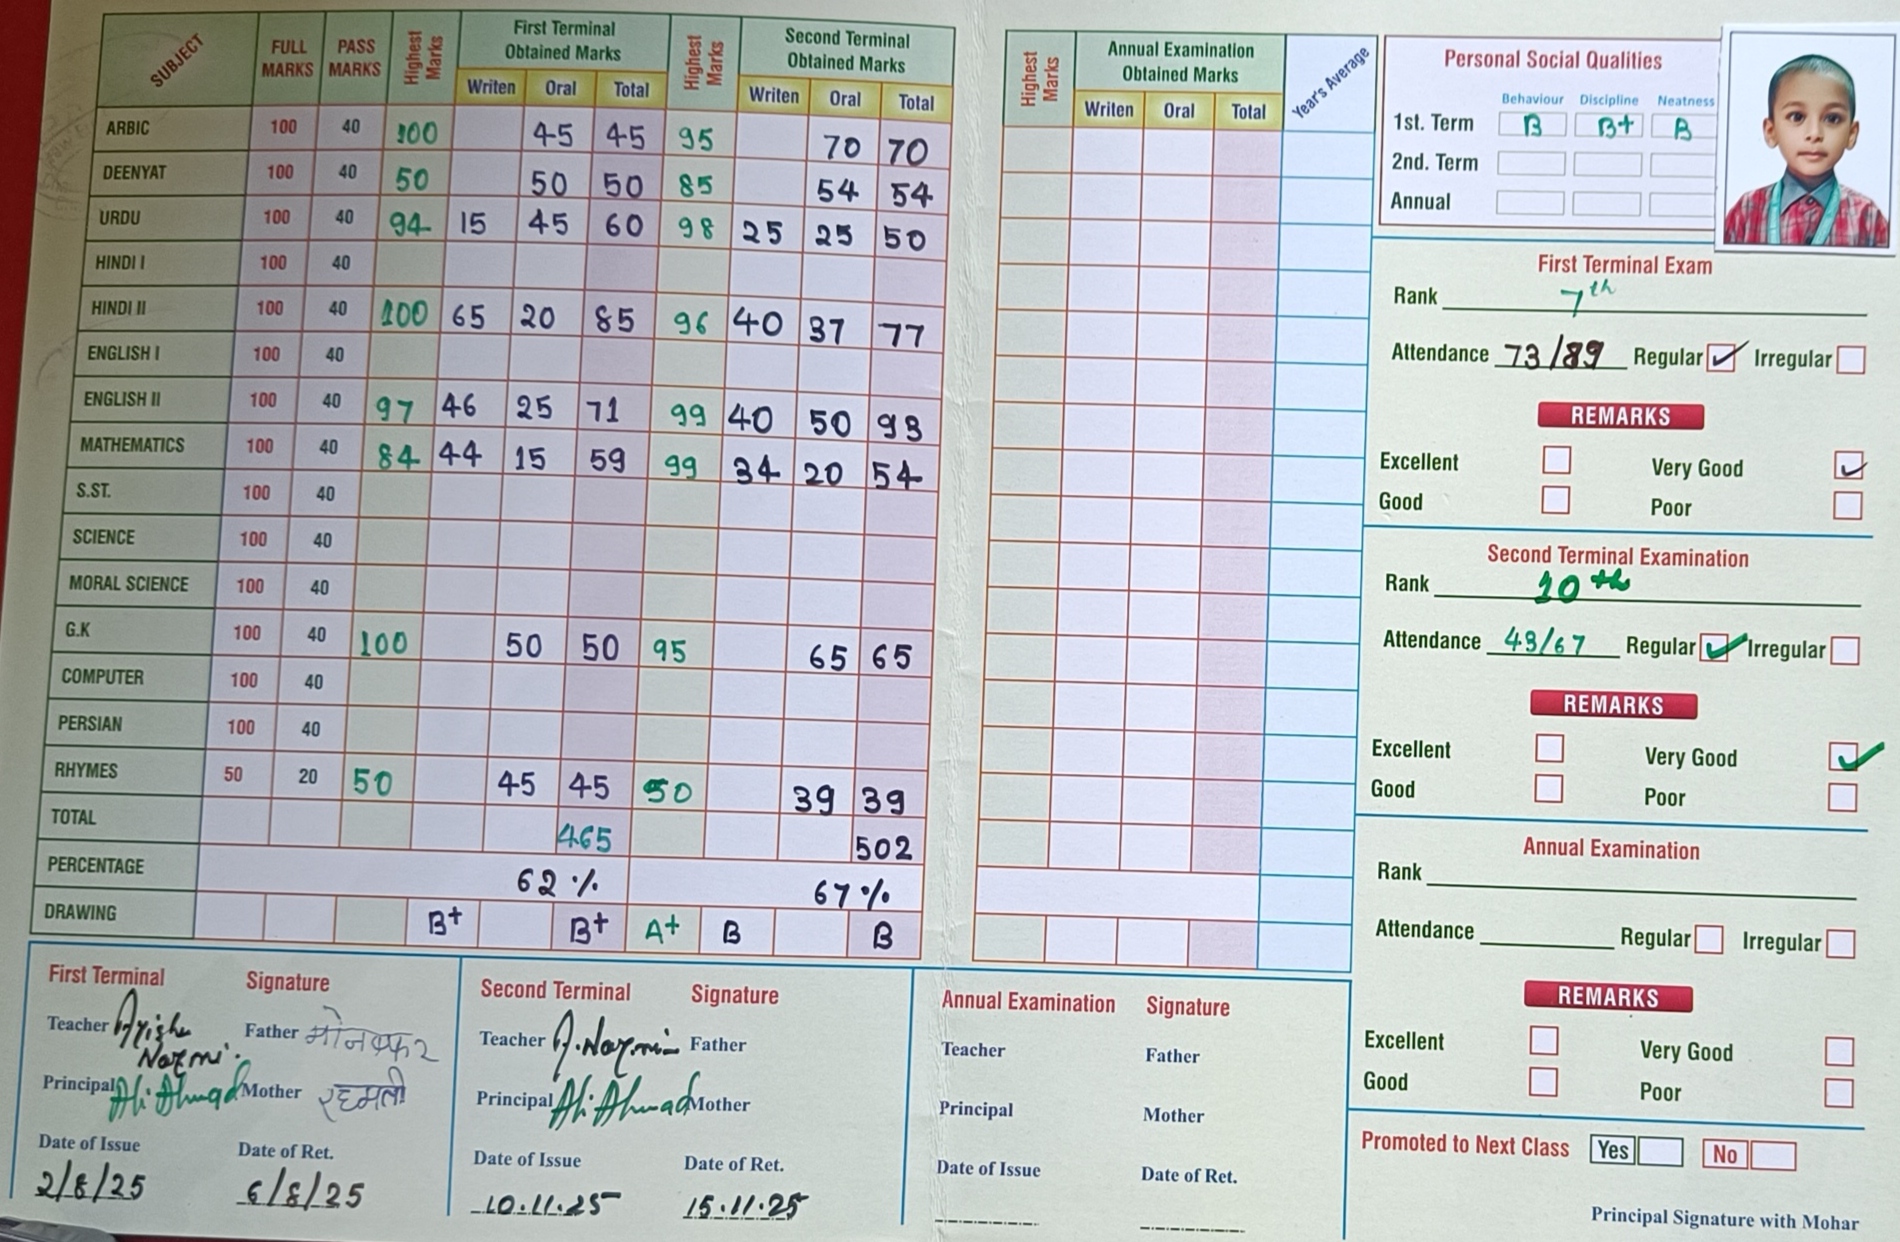 SUBJECT FULL MARKS PASS MARKS Highest Marks First Terminal Obtained Marks Highest Marks Second Terminal Obtained Marks
Writen Oral Total Writen Oral Total
ARBIC 100 40 100 45 45 95 70 70
DEENYAT 100 40 50 50 50 85 54 54
URDU 100 40 94 15 45 60 98 25 25 50
HINDI I 100 40
HINDI II 100 40 100 65 20 85 96 40 37 77
ENGLISH I 100 40
ENGLISH II 100 40 97 46 25 71 99 40 50 93
MATHEMATICS 100 40 84 44 15 59 99 34 20 54
S.ST. 100 40
SCIENCE 100 40
MORAL SCIENCE 100 40
G.K 100 40 100 50 50 95 65 65
COMPUTER 100 40
PERSIAN 100 40
RHYMES 50 20 50 45 45 50 39 39
TOTAL 465 502
PERCENTAGE 62 % 67 %
DRAWING B+ B+ A+ B B
Highest Marks Annual Examination Obtained Marks Year's Average
Writen Oral Total
Personal Social Qualities
Behaviour Discipline Neatness
1st. Term B B+ B
2nd. Term
Annual
First Terminal Exam
Rank 7th
Attendance 73/89 Regular Irregular
REMARKS
Excellent Very Good
Good Poor
Second Terminal Examination
Rank 10th
Attendance 43/67 Regular Irregular
REMARKS
Excellent Very Good
Good Poor
Annual Examination
Rank
Attendance Regular Irregular
REMARKS
Excellent Very Good
Good Poor
Promoted to Next Class Yes No
Principal Signature with Mohar
First Terminal Signature
Teacher Ayisha Nazmi. Father
Principal Ali Ahmad Mother रहमती
Date of Issue Date of Ret.
2/8/25 6/8/25
Second Terminal Signature
Teacher A. Nazmi Father
Principal Ali Ahmad Mother
Date of Issue Date of Ret.
10.11.25 15.11.25
Annual Examination Signature
Teacher Father
Principal Mother
Date of Issue Date of Ret.